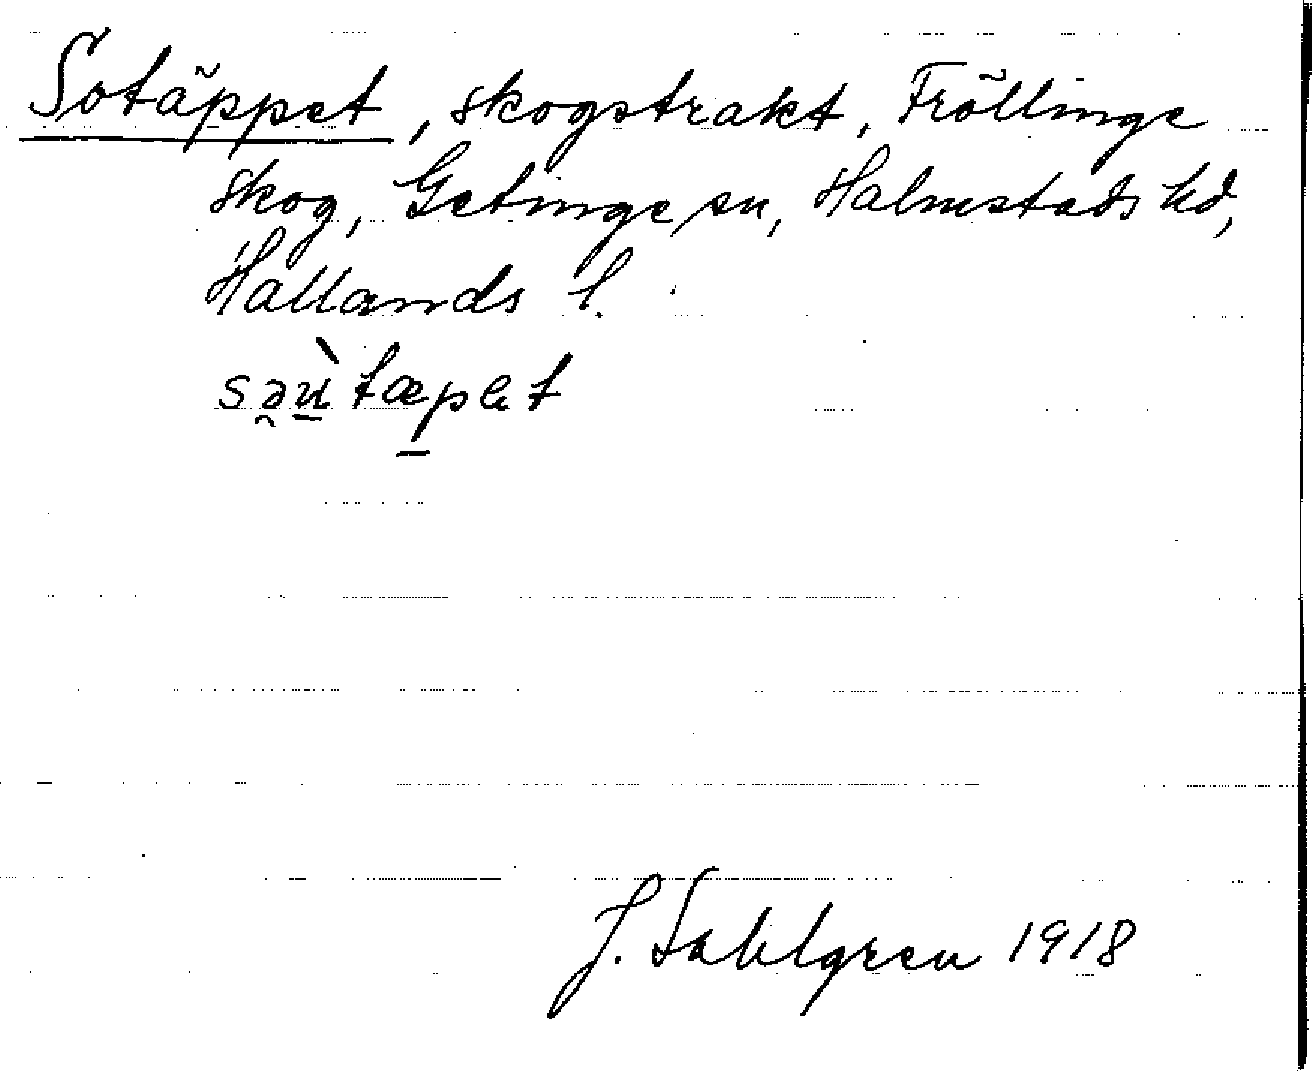 Sotäppet, skogstrakt, Fröllinge
skog, Getinge sn, Halmstads hd,
Hallands l.
səù̠tæp̠et
J. Sahlgren 1918